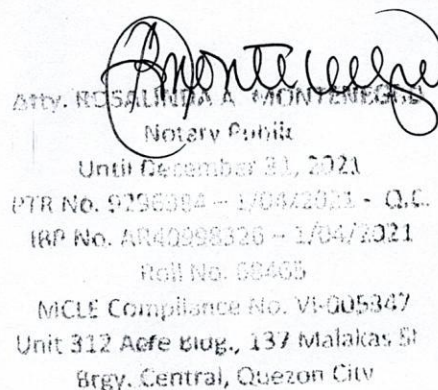 Atty. ROSALINDA A. MONTENEGRO
Notary Public
Until December 31, 2021
PTR No. 9296984 – 1/04/2021 - Q.C.
IBP No. AR40998326 – 1/04/2021
Roll No. 68465
MCLE Compliance No. VI-005347
Unit 312 Acfe Bldg., 137 Malakas St
Brgy. Central, Quezon City